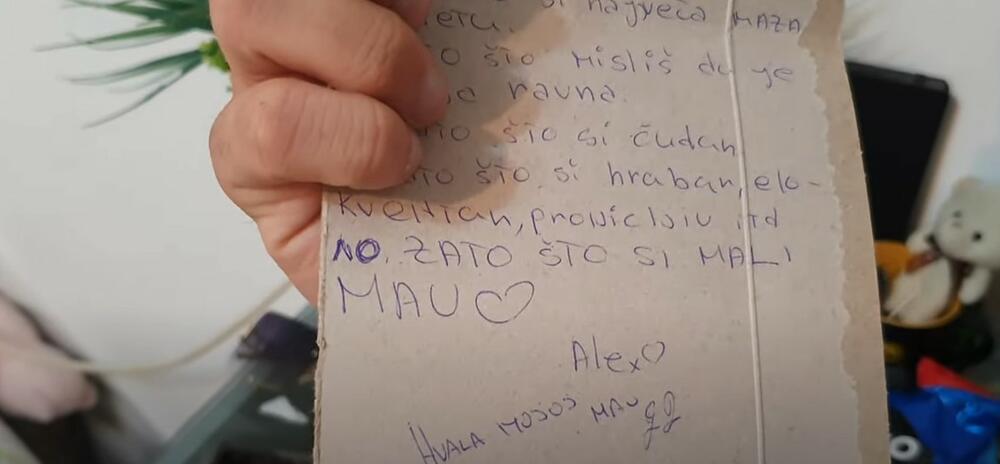 si največa MAZA
ŠTO misliš da je
ravna.
ŠTO si čudan
ŠTO si hraban, elo-
kventan, itd
NO. ZATO ŠTO SI MALI
MAU♡
Alex♡
HVALA MOJOJ MAU